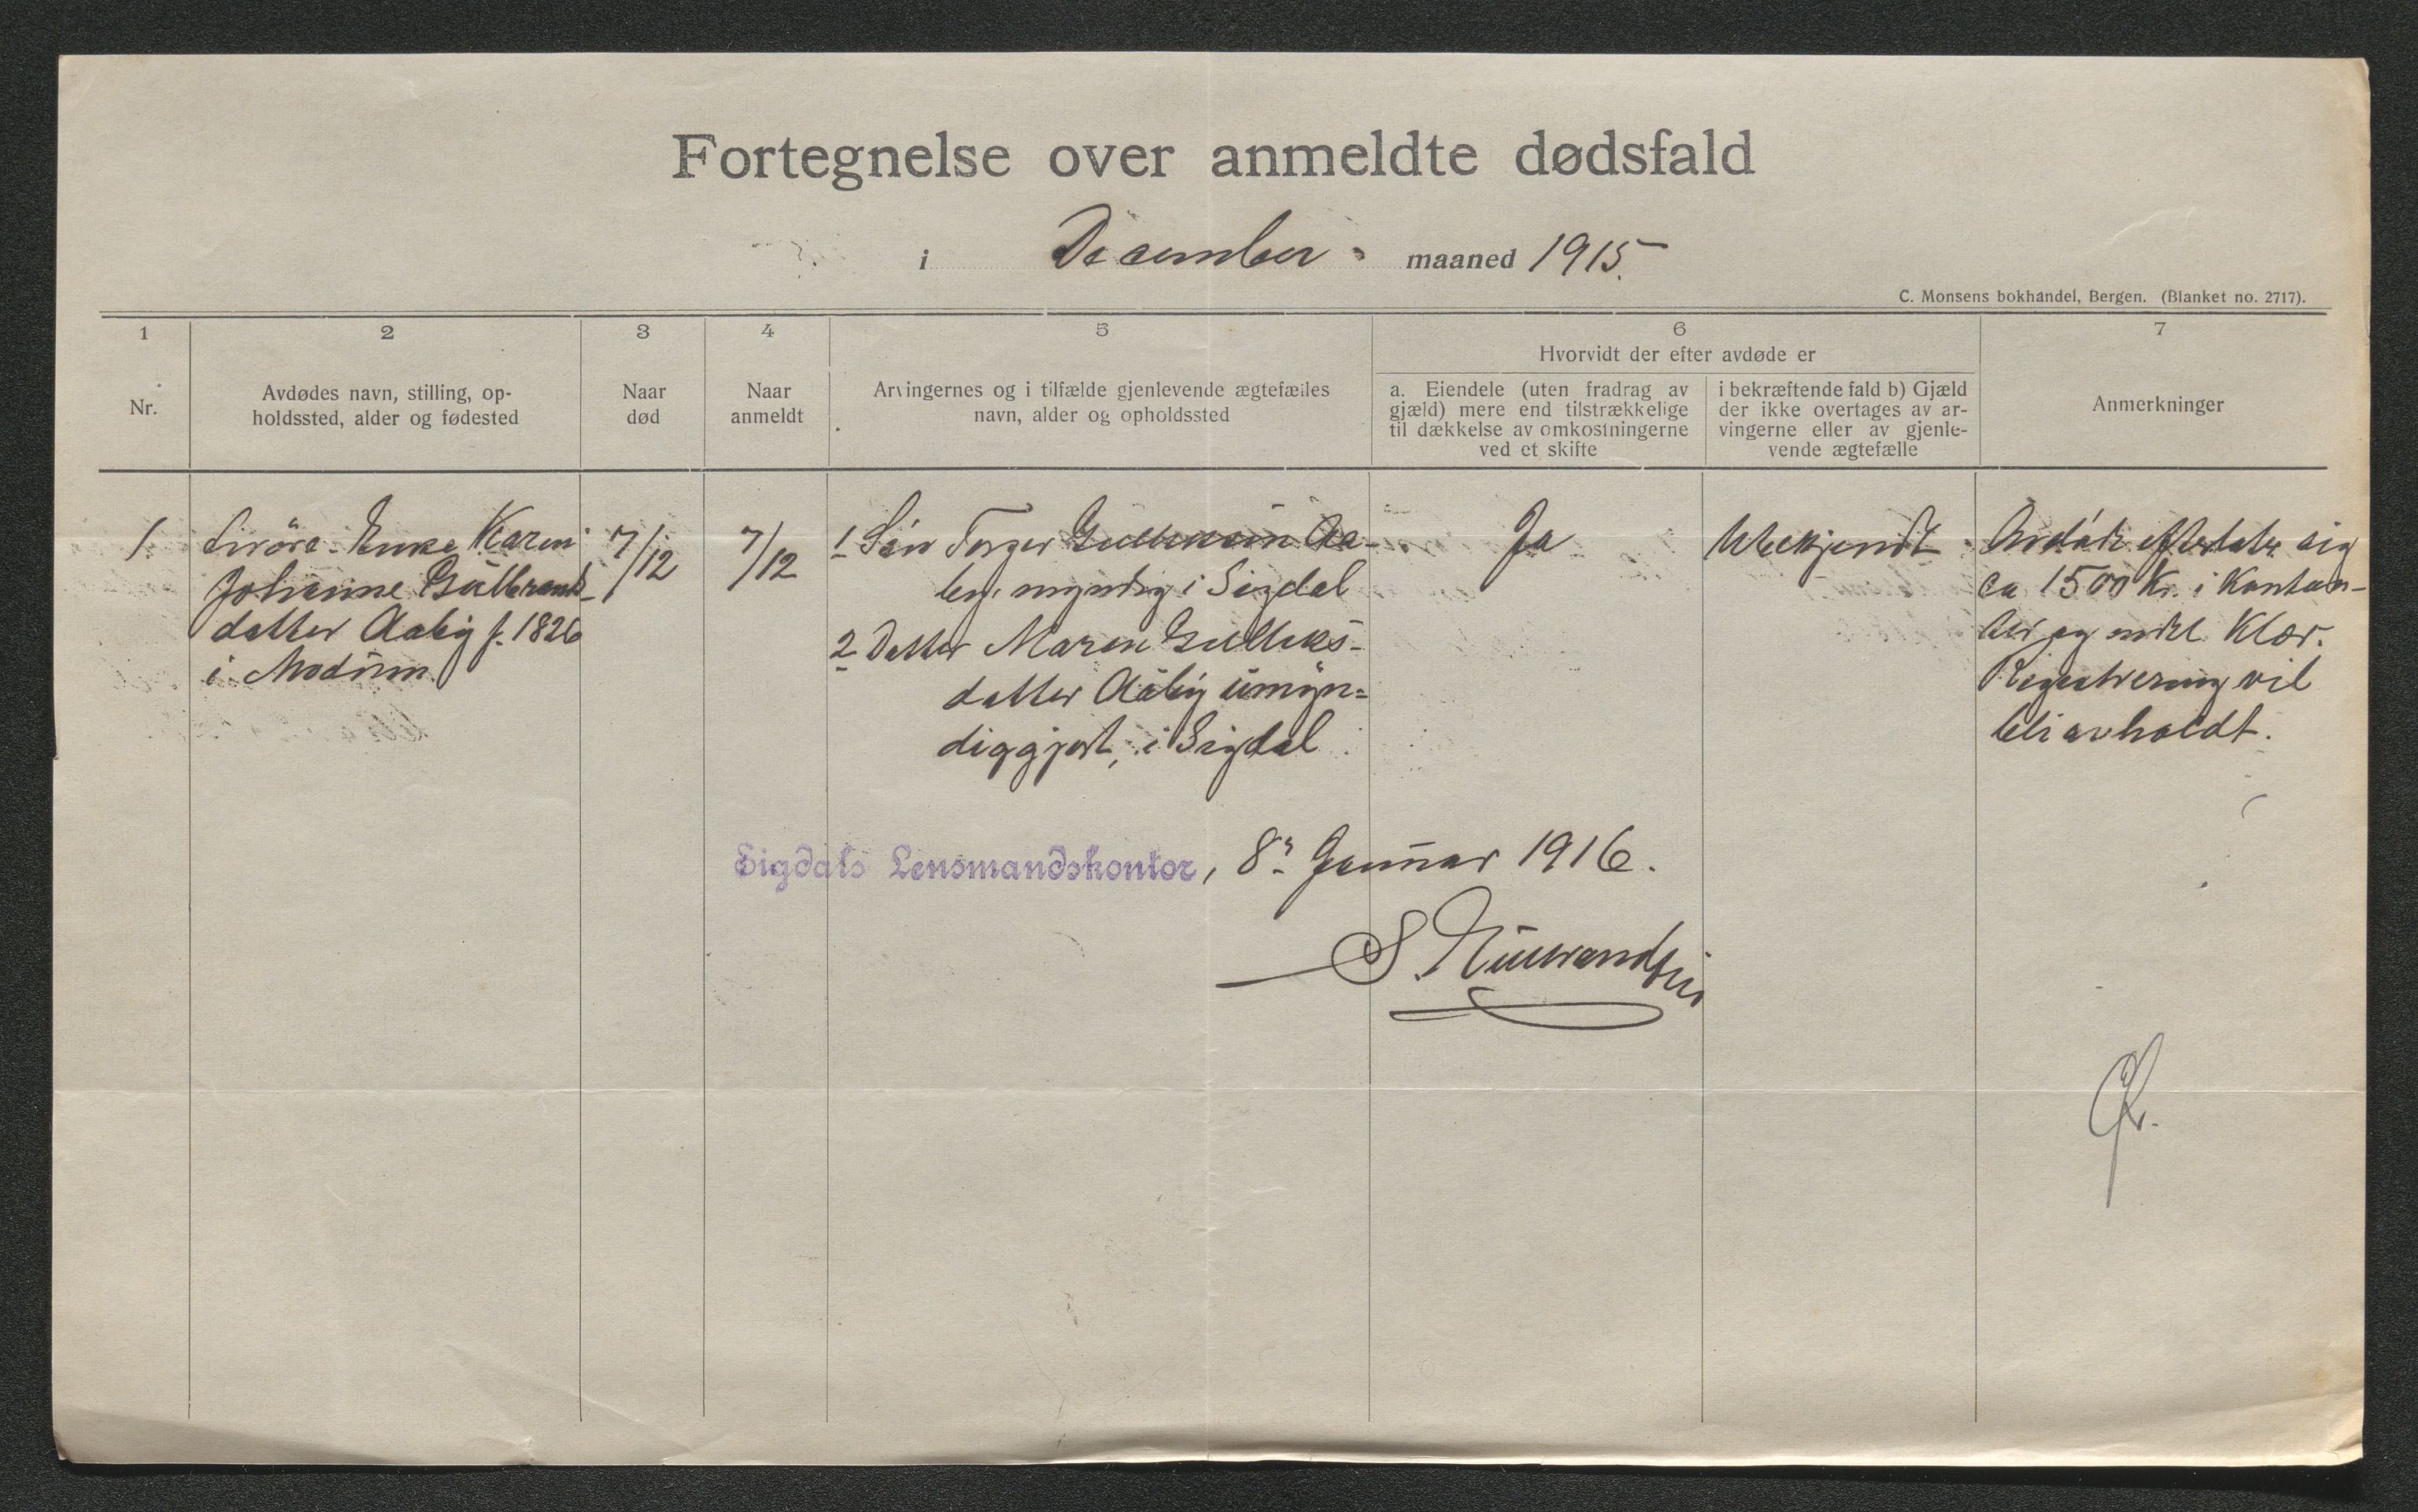 Fortegnelse over anmeldte dødsfald
i December maaned 1915.
C. Monsens bokhandel, Bergen. (Blanket no. 2717).
1
Nr.
2
Avdødes navn, stilling, op-
holdssted, alder og fødested
3
Naar
død
4
Naar
anmeldt
5
Arvingernes og i tilfælde gjenlevende ægtefælles
navn, alder og opholdssted
6
Hvorvidt der efter avdøde er
a. Eiendele (uten fradrag av
gjæld) mere end tilstrækkelige
til dækkelse av omkostningerne
ved et skifte
i bekræftende fald b) Gjæld
der ikke overtages av ar-
vingerne eller av gjenle-
vende ægtefælle
7
Anmerkninger
1.
Enke Karen
Johanne Gulbrands-
datter Aaby f. 1826
i Modum.
7/12
7/12
1 Søn Torger Aa-
by, myndig i Sigdal
2 Datter Maren Gulliks-
datter Aaby umyn-
diggjort, i Sigdal.
Ja
Ubekjendt
Avdøde efterlater sig
ca 1500 Kr. i Kontan-
ter og endel Klær.
Registrering vil
bli avholdt.
Sigdals Lensmandskontor, 8. Januar 1916.
S.